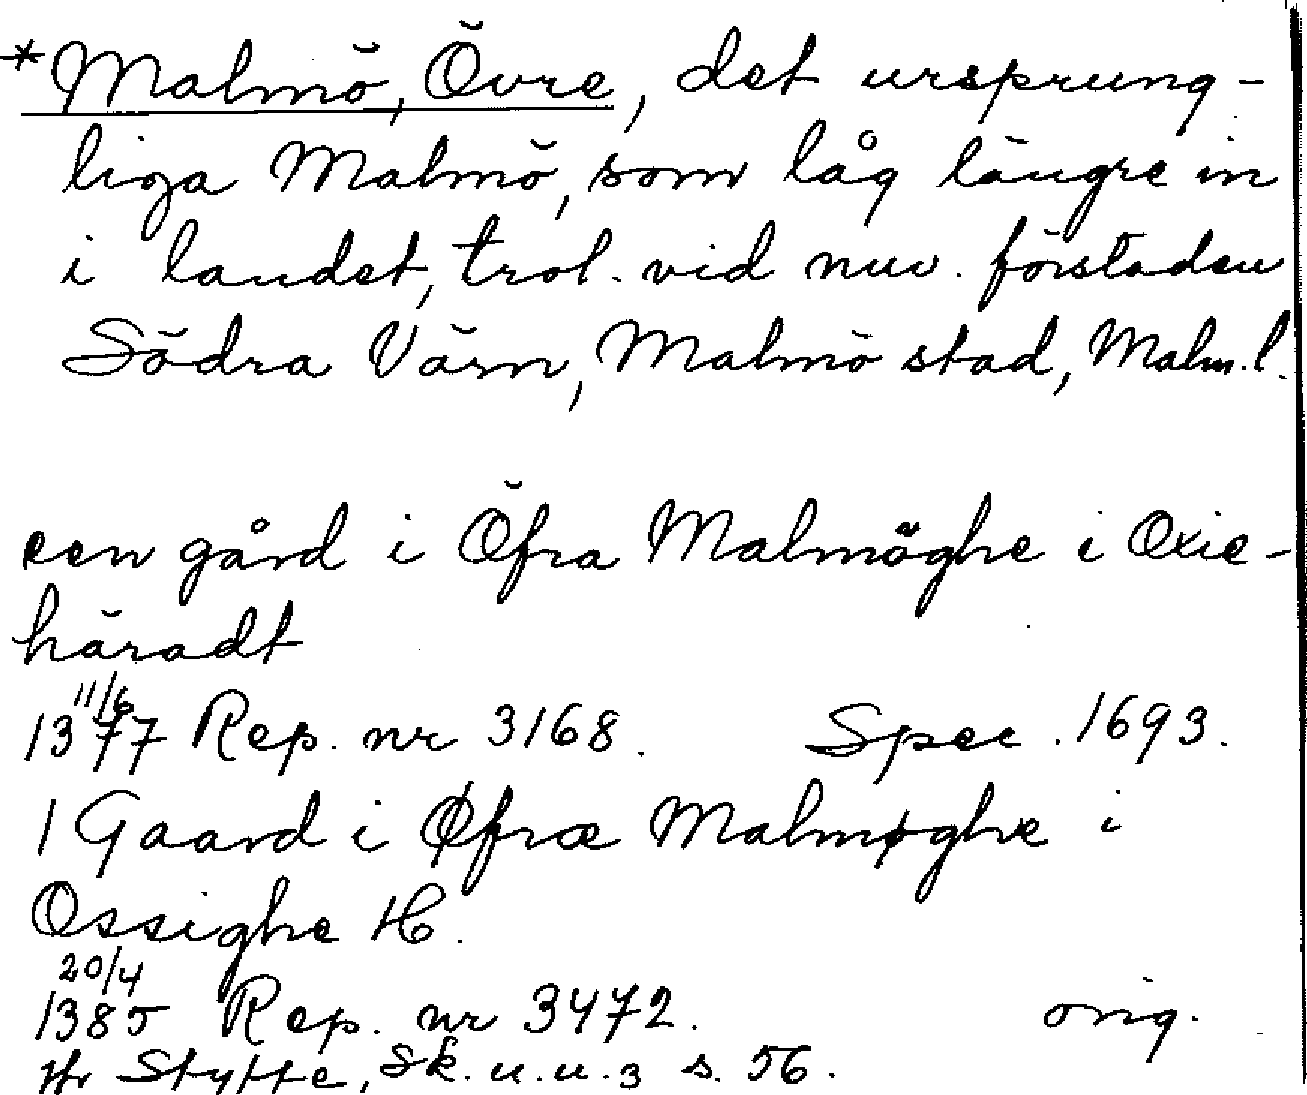 *Malmö, Övre, det ursprung-
liga Malmö, som låg längre in
i landet, trol. vid nuv. förstaden
Södra Värn, Malmö stad, Malm.l.
een gård i Öfra Malmöghe i Oxie-
häradt
11/6
1377 Rep. nr 3168. Spec. 1693.
1 Gaard i Øfræ Malmøghe i
Ossighe H.
20/4
1385 Rep. nr 3472. orig.
Styffe, Sk. u. u. 3 s. 56.